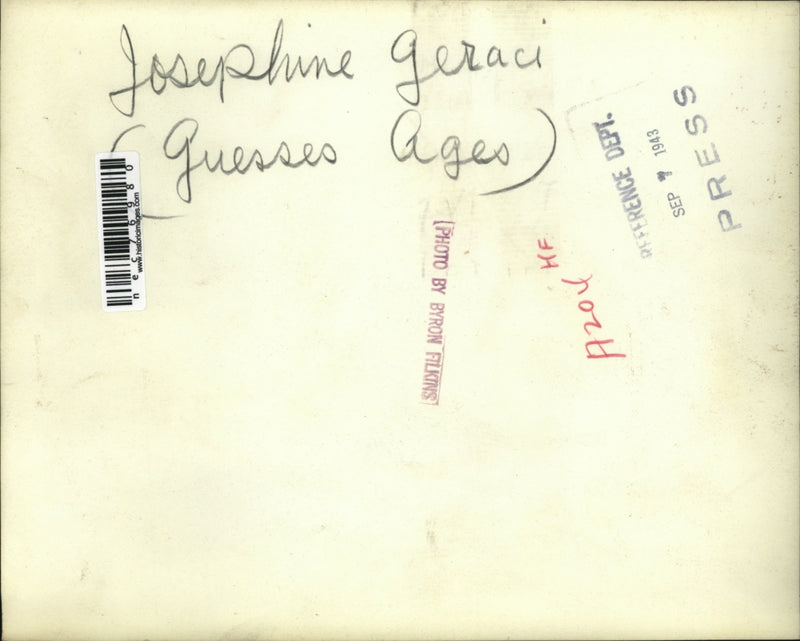 Josephine Geraci
(Guesses Ages)
necz6980
www.historicimages.com
[PHOTO BY BYRON FILKINS]
HF
REFERENCE DEPT.
SEP 7 1943
PRESS